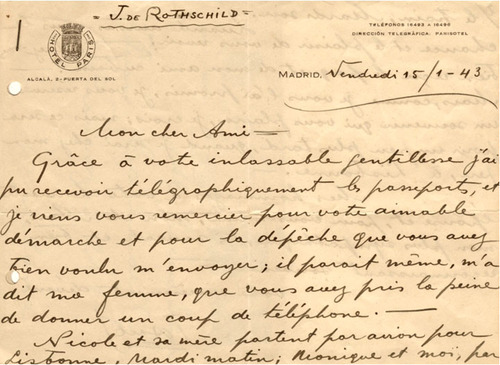 = J. DE ROTHSCHILD =
HOTEL PARIS
TELÉFONOS 16493 a 16496
DIRECCIÓN TELEGRÁFICA: PARISOTEL
ALCALÁ, 2-PUERTA DEL SOL
MADRID, Vendredi 15/1-43
Mon cher Ami =
Grâce à vote inlassable gentillesse j'ai
pu recevoir télégraphiquement les passeports, et
je viens vous remercier pour vote aimable
démarche et pour la dépêche que vous avez
bien voulu m'envoyer; il parait même, m'a
dit ma femme, que vous avez pris la peine
de donner un coup de téléphone. —
Nicole et sa mère partent par avion pour
Lisbonne, Mardi matin; Monique et moi, par